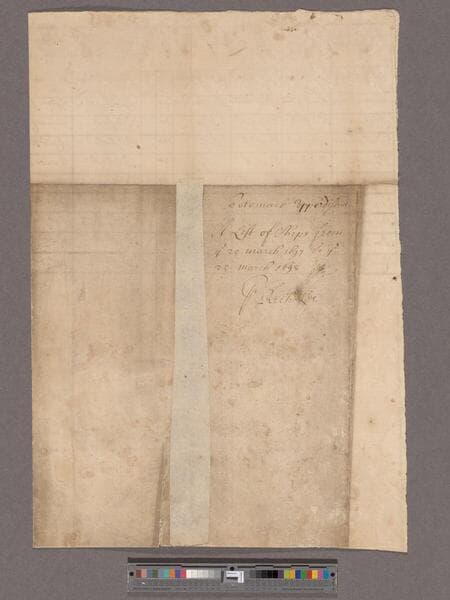 Potomack Vpper district
A List of Ships from
yͤ 25 march 1697 to yͤ
25 march 1698